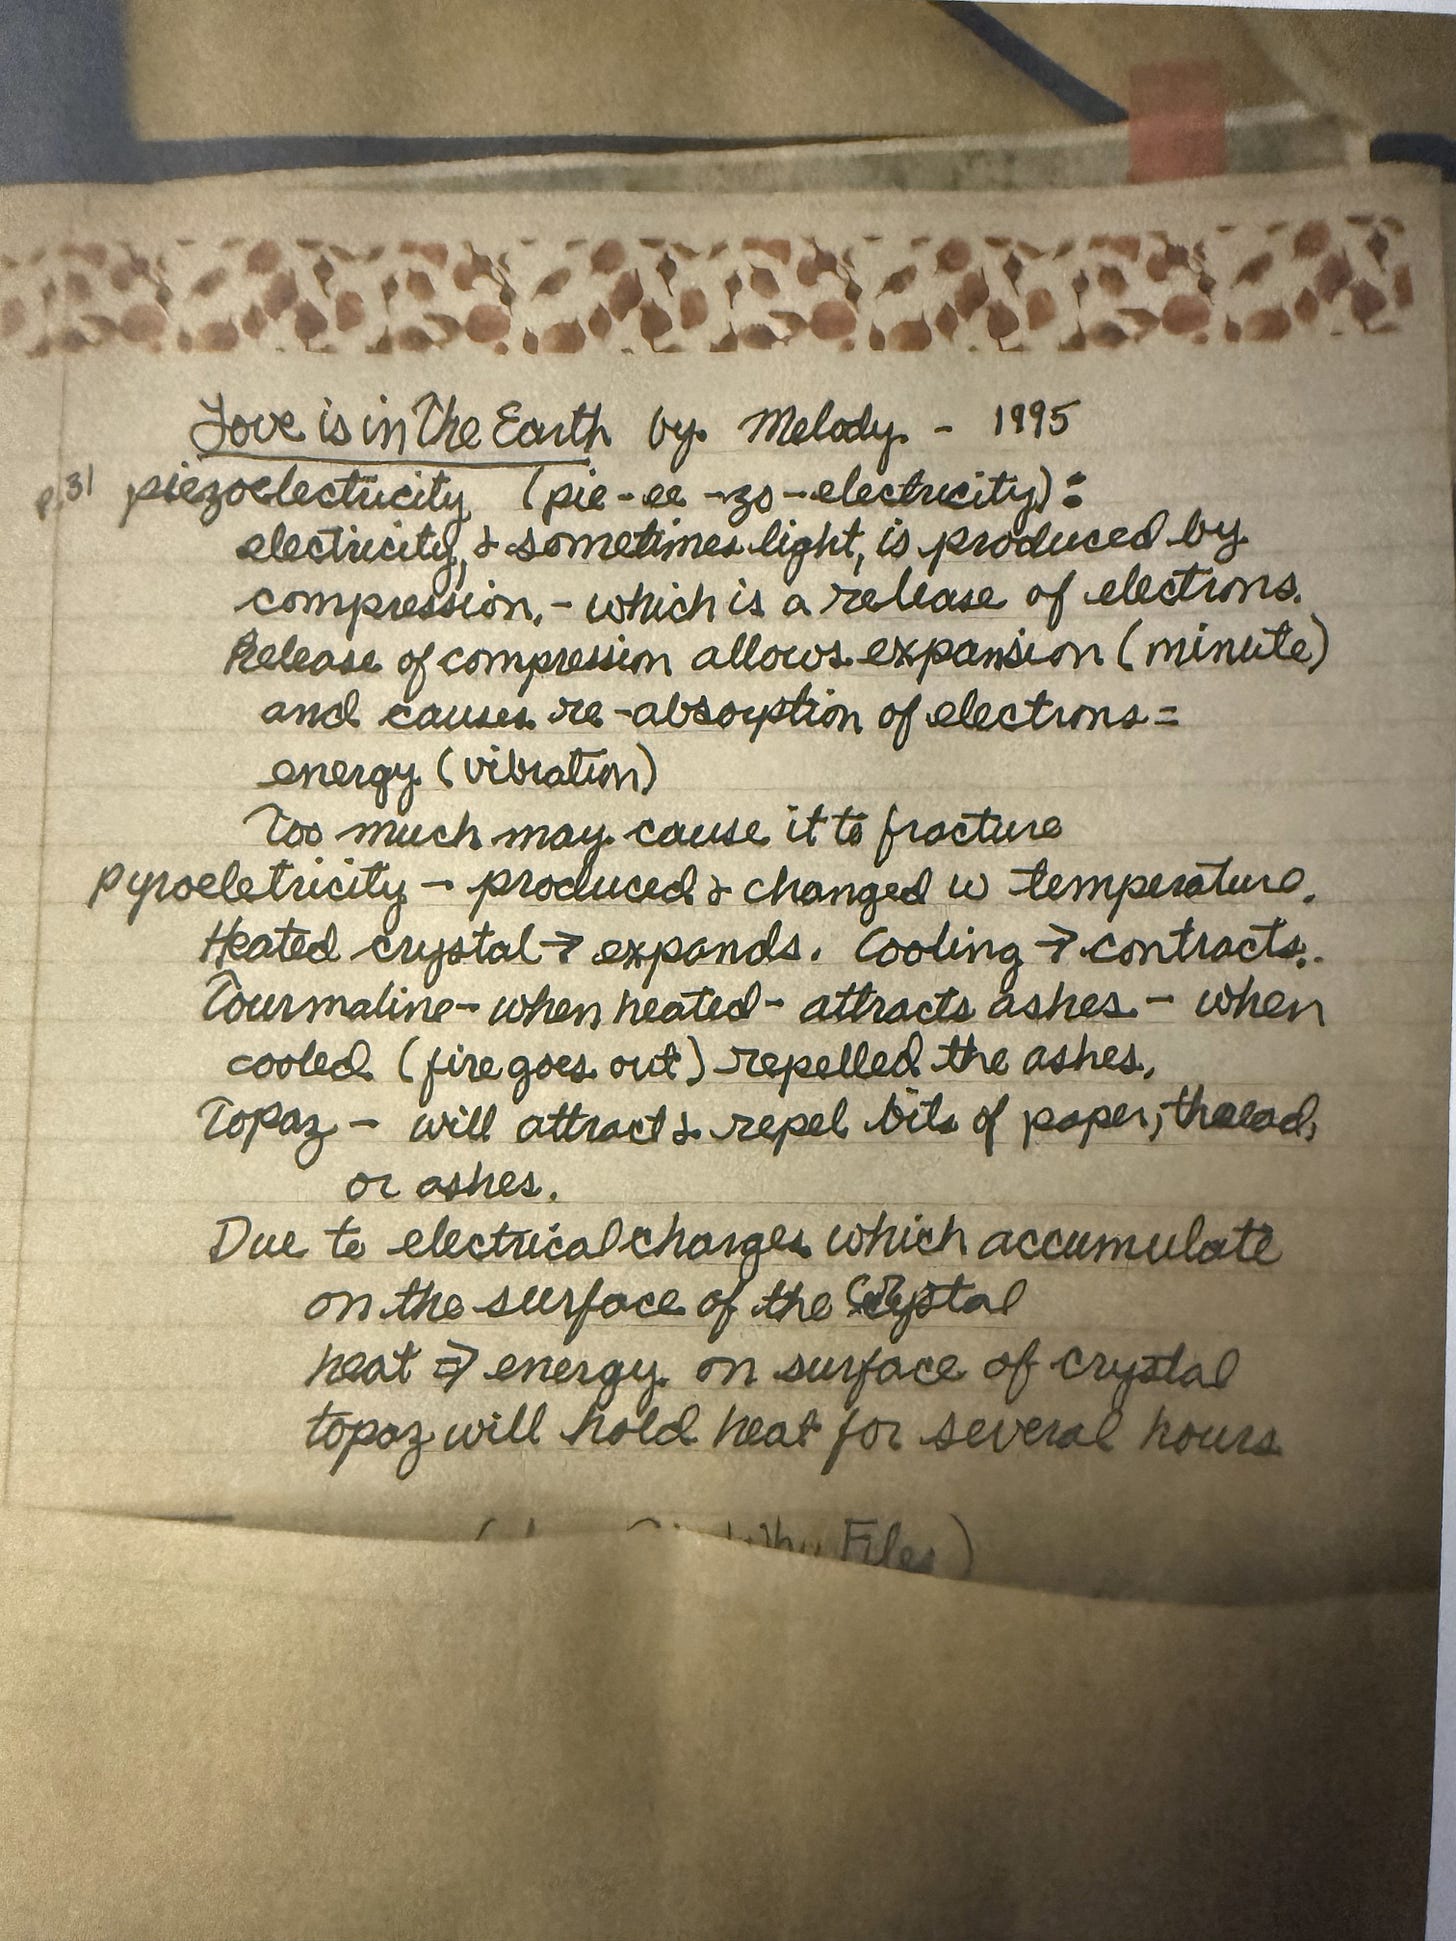 Love is in The Earth by Melody - 1995
p.31 piezoelectricity (pie-ee-zo-electricity):
electricity, & sometimes light, is produced by
compression, - which is a release of electrons.
Release of compression allows expansion (minute)
and causes re-absorption of electrons =
energy (vibration)
Too much may cause it to fracture
Pyroeletricity - produced & changed w temperature.
Heated crystal → expands. Cooling → contracts.
Tourmaline - when heated - attracts ashes - when
cooled (fire goes out) repelled the ashes.
Topaz - will attract & repel bits of paper, thread,
or ashes.
Due to electrical charges which accumulate
on the surface of the Crystal
heat ⇒ energy on surface of crystal
topaz will hold heat for several hours
Files)